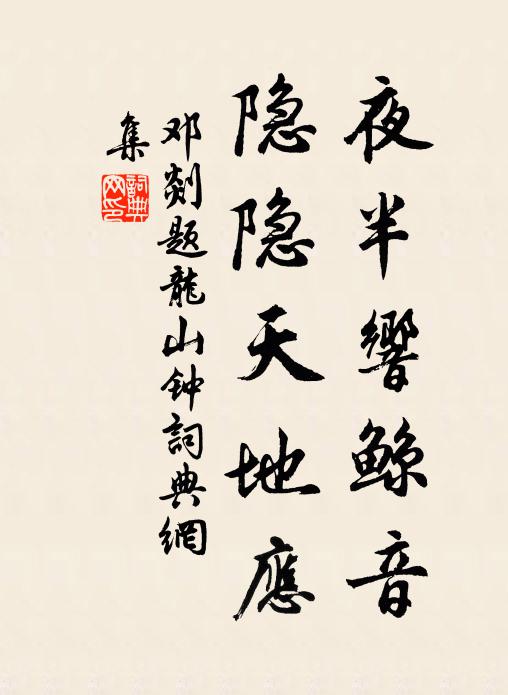 夜半響鲸音
隐隐天地應
邓剡题龍山钟詞典網
集
詞典網印